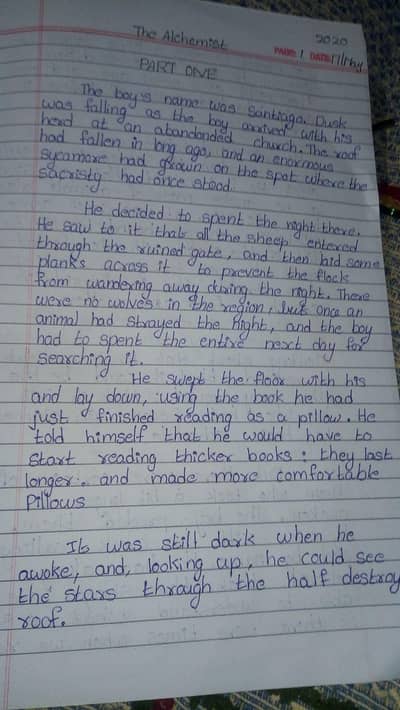 The Alchemist
2020
PAGE: 1 DATE:
PART ONE
The boy's name was Santiago. Dusk
was falling as the boy arrived with his
herd at an abandonded church. The roof
had fallen in long ago, and an enormous
sycamore had grown on the spot where the
sacristy had once stood.
He decided to spent the night there.
He saw to it that all the sheep entered
through the ruined gate, and then laid some
planks across it to prevent the flock
from wandering away during the night. There
were no wolves in the region, but once an
animal had strayed the night, and the boy
had to spent the entire next day for
searching it.
He swept the floor with his
and lay down, using the book he had
just finished reading as a pillow. He
told himself that he would have to
start reading thicker books: they last
longer. and made more comfortable
Pillows
It was still dark when he
awoke, and, looking up, he could see
the stars through the half destroy
roof.